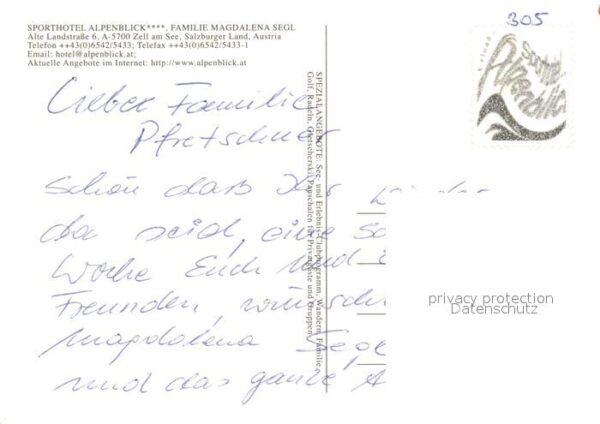 SPORTHOTEL ALPENBLICK****, FAMILIE MAGDALENA SEGL
Alte Landstraße 6, A-5700 Zell am See, Salzburger Land, Austria
Telefon ++43(0)6542/5433; Telefax ++43(0)6542/5433-1
Email: hotel@alpenblick.at;
Aktuelle Angebote im Internet: http://www.alpenblick.at
305
Sporthotel
Alpenblick
Liebe Familie
Pfretschner
Schön daß Ihr wieder
da seid, eine Sc
Woche Euch und
Freunden, wünsch
Magdalena Segl
und das ganze A
SPEZIALANGEBOTE: See- und Erlebnis-Clubprogramm, Wandern, Familie,
Golf, Radeln, Gletscherski, Pauschalen für Privatgäste und Gruppen
privacy protection
Datenschutz